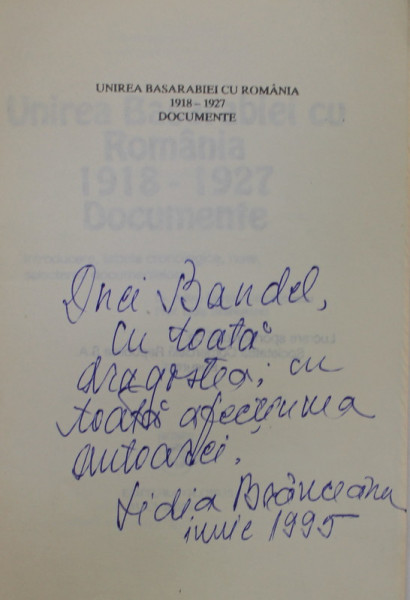 UNIREA BASARABIEI CU ROMÂNIA
1918 – 1927
DOCUMENTE
Unirea Basarabiei cu
România
1918 - 1927
Documente
Dnei Bandel,
Cu toată
dragostea, cu
toată afecțiunea
autoarei.
Lidia Brânceanu
iunie 1995